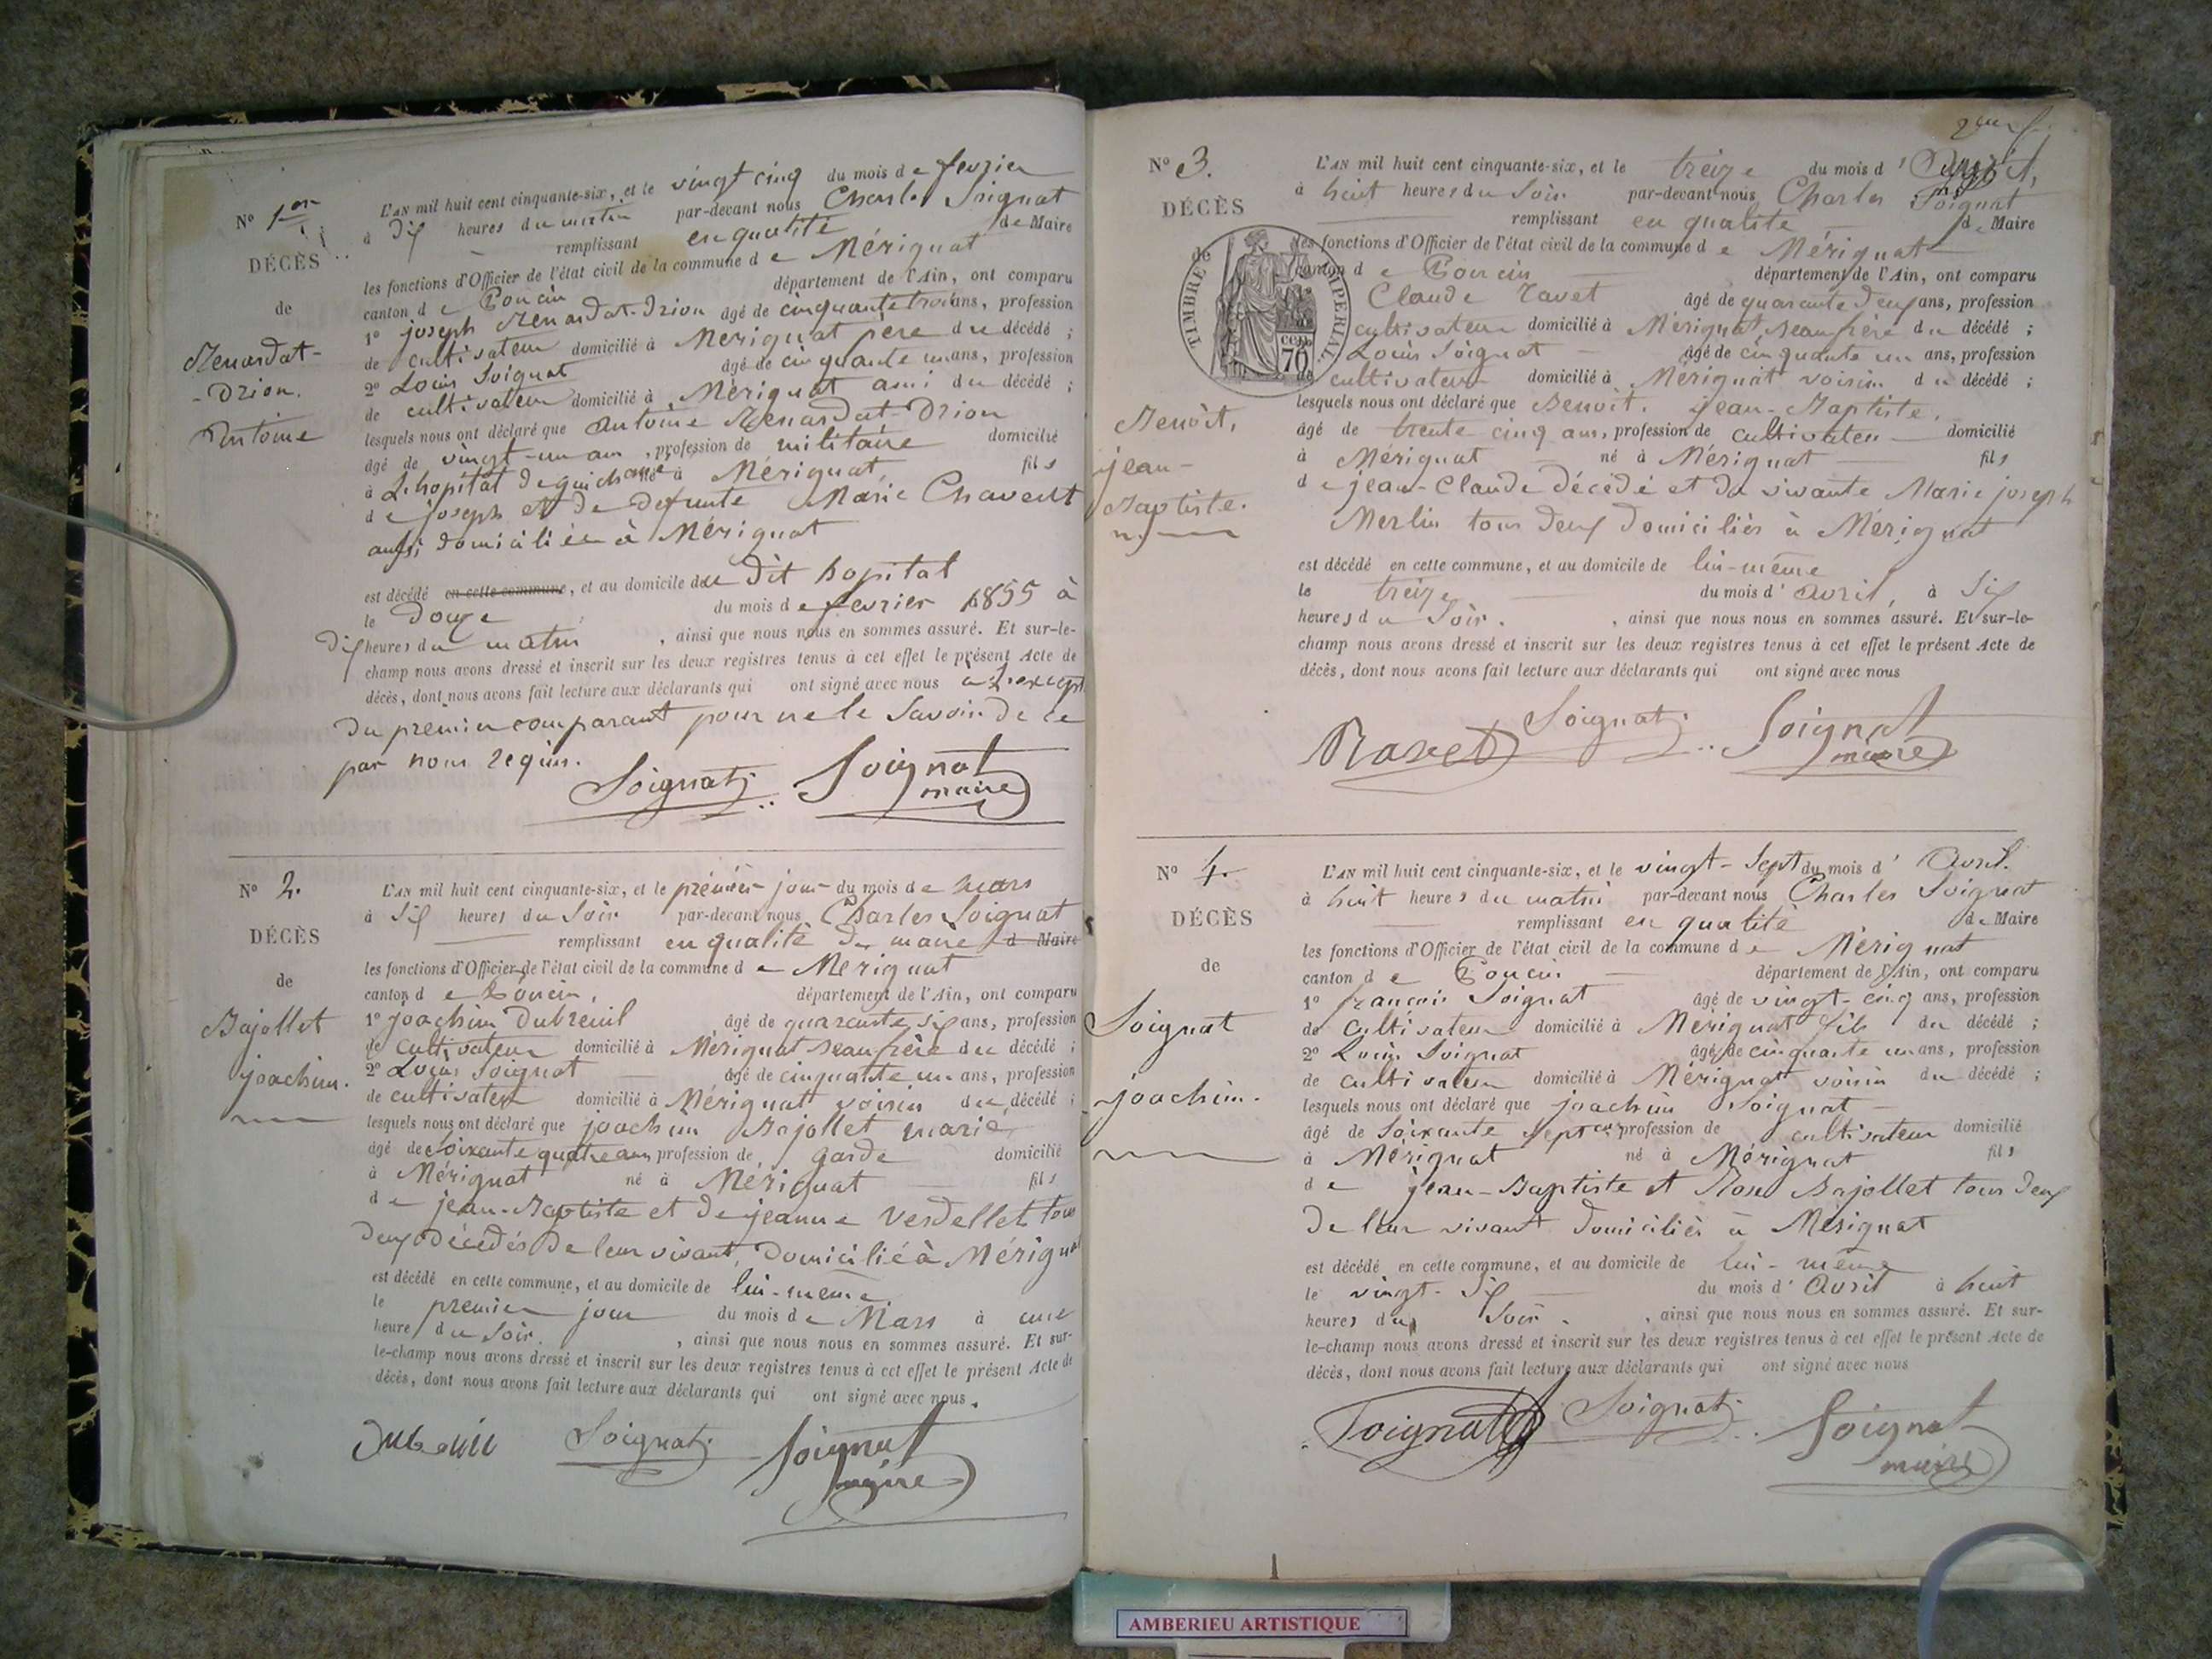 N° 1er
DÉCÈS
de
Menardat-
-Drion.
Antoine
L'AN mil huit cent cinquante-six, et le vingt cinq du mois de fevrier
à dix heures du matin par-devant nous Charles Soignat
remplissant en qualité de Maire
les fonctions d'Officier de l'état civil de la commune de Mérignat
canton de Poncin département de l'Ain, ont comparu
1° joseph Menardat-Drion âgé de cinquante trois ans, profession
de cultivateur domicilié à Merignat père du décédé ;
2° Louis Soignat âgé de cinquante un ans, profession
de cultivateur domicilié à Mérignat ami du décédé ;
lesquels nous ont déclaré que Antoine Menardat-Drion
âgé de vingt-un ans, profession de militaire domicilié
à L'hopital de né à Mérignat fils
de joseph et de defunte Marie Chavent
aussi domiciliée à Mérignat
est décédé en cette commune, et au domicile du dit hopital
le douze du mois de fevrier 1855 à
dix heures du matin, ainsi que nous nous en sommes assuré. Et sur-le-
champ nous avons dressé et inscrit sur les deux registres tenus à cet effet le présent Acte de
décès, dont nous avons fait lecture aux déclarants qui ont signé avec nous
du premier comparant pour ne le savoir de ce
par nous requis.
Soignat Soignat
maire
N° 2.
DÉCÈS
de
Bajollet
joachim.
L'AN mil huit cent cinquante-six, et le premier jour du mois de mars
à six heures du soir par-devant nous Charles Soignat
remplissant en qualité de maire d Maire
les fonctions d'Officier de l'état civil de la commune de Merignat
canton de Poncin, département de l'Ain, ont comparu
1° joachim Dubreuil âgé de quarante six ans, profession
de cultivateur domicilié à Mérignat beau frère du décédé ;
2° Louis Soignat âgé de cinquante un ans, profession
de cultivateur domicilié à Mérignat voisin du décédé ;
lesquels nous ont déclaré que joachim Bajollet marié
âgé de soixante quatre ans profession de garde domicilié
à Mérignat né à Mérignat fils
de jean-Baptiste et de jeanne Verdellet tous
deux décédés de leur vivant, domicilié à Mérignat
est décédé en cette commune, et au domicile de lui-même
le premier jour du mois de Mars à une
heure du soir. , ainsi que nous nous en sommes assuré. Et sur-
le-champ nous avons dressé et inscrit sur les deux registres tenus à cet effet le présent Acte de
décès, dont nous avons fait lecture aux déclarants qui ont signé avec nous.
Dubreuil Soignat Soignat
maire
N° 3.
DÉCÈS
de
TIMBRE IMPERIAL
70 CEN.
Benoit,
jean-
Baptiste.
L'AN mil huit cent cinquante-six, et le treize du mois d'
à huit heures du soir par-devant nous Charles Soignat
remplissant en qualité de Maire
les fonctions d'Officier de l'état civil de la commune de Mérignat
canton de Poncin département de l'Ain, ont comparu
Claude Ravet âgé de quarante deux ans, profession
cultivateur domicilié à Mérignat beau frère du décédé ;
Louis Soignat âgé de cinquante un ans, profession
de cultivateur domicilié à Mérignat voisin du décédé ;
lesquels nous ont déclaré que Benoit. jean-Baptiste.
âgé de trente cinq ans, profession de cultivateur domicilié
à Mérignat né à Mérignat fils
de jean-Claude décédé et de vivante Marie joseph
Merlin tous deux domiciliés à Mérignat
est décédé en cette commune, et au domicile de lui-même
le treize du mois d'avril, à six
heures du soir. , ainsi que nous nous en sommes assuré. Et sur-le-
champ nous avons dressé et inscrit sur les deux registres tenus à cet effet le présent Acte de
décès, dont nous avons fait lecture aux déclarants qui ont signé avec nous
Ravet Soignat Soignat
maire
N° 4.
DÉCÈS
de
Soignat
joachim.
L'AN mil huit cent cinquante-six, et le vingt-sept du mois d'avril.
à huit heures du matin par-devant nous Charles Soignat
remplissant en qualité de Maire
les fonctions d'Officier de l'état civil de la commune de Mérignat
canton de Poncin département de l'Ain, ont comparu
1° françois Soignat âgé de vingt-cinq ans, profession
de cultivateur domicilié à Mérignat fils du décédé ;
2° Louis Soignat âgé de cinquante un ans, profession
de cultivateur domicilié à Mérignat voisin du décédé ;
lesquels nous ont déclaré que joachim Soignat
âgé de soixante sept ans profession de cultivateur domicilié
à Mérignat né à Mérignat fils
de jean-Baptiste et Rose Bajollet tous deux
de leur vivant domiciliés à Mérignat
est décédé en cette commune, et au domicile de lui-même
le vingt-six du mois d'avril à huit
heures du soir. , ainsi que nous nous en sommes assuré. Et sur-
le-champ nous avons dressé et inscrit sur les deux registres tenus à cet effet le présent Acte de
décès, dont nous avons fait lecture aux déclarants qui ont signé avec nous
Soignat Soignat Soignat
maire
AMBERIEU ARTISTIQUE